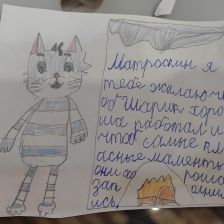 Матроскин я
тебе желаю что
об Шарик хоро
шо работал и
чтоб самые
асные моменты
они хо рошо
зап
ись